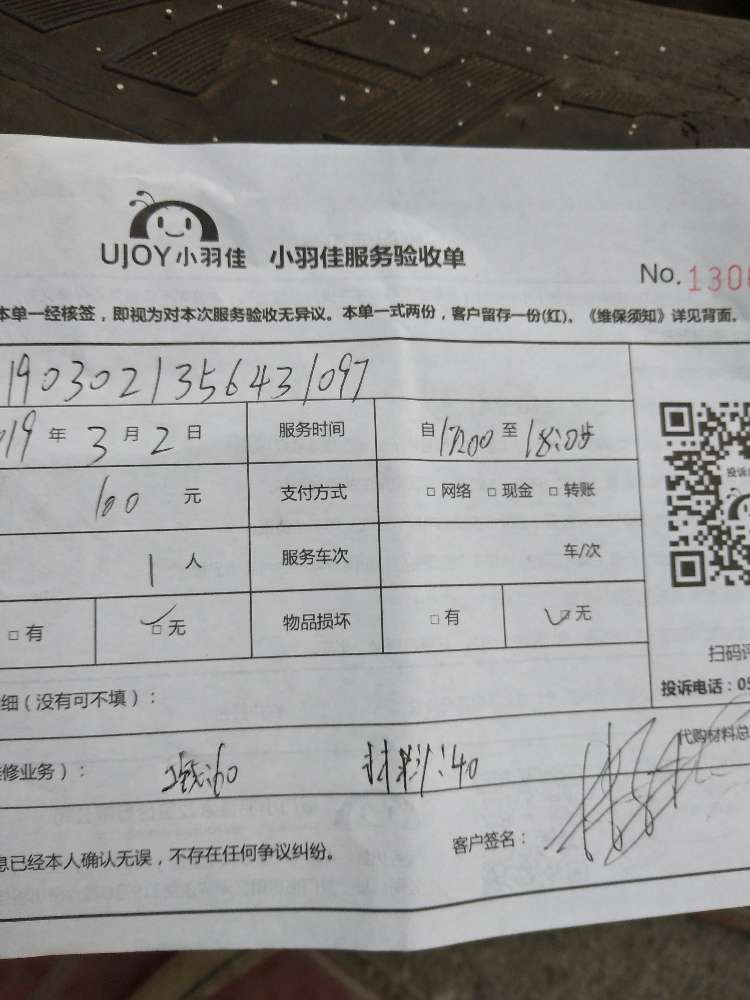 UJOY小羽佳 小羽佳服务验收单
No. 130
本单一经核签，即视为对本次服务验收无异议。本单一式两份，客户留存一份(红)。《维保须知》详见背面。
1903021356431097
019 年 3 月 2 日 服务时间 自 17:00 至 18:00
100 元 支付方式 □ 网络 □ 现金 □ 转账
1 人 服务车次 车/次
□ 有 □ 无 物品损坏 □ 有 □ 无
扫码评
投诉电话：05
细（没有可不填）：
代购材料总
修业务）： 工钱:60 材料:40
客户签名：
息已经本人确认无误，不存在任何争议纠纷。